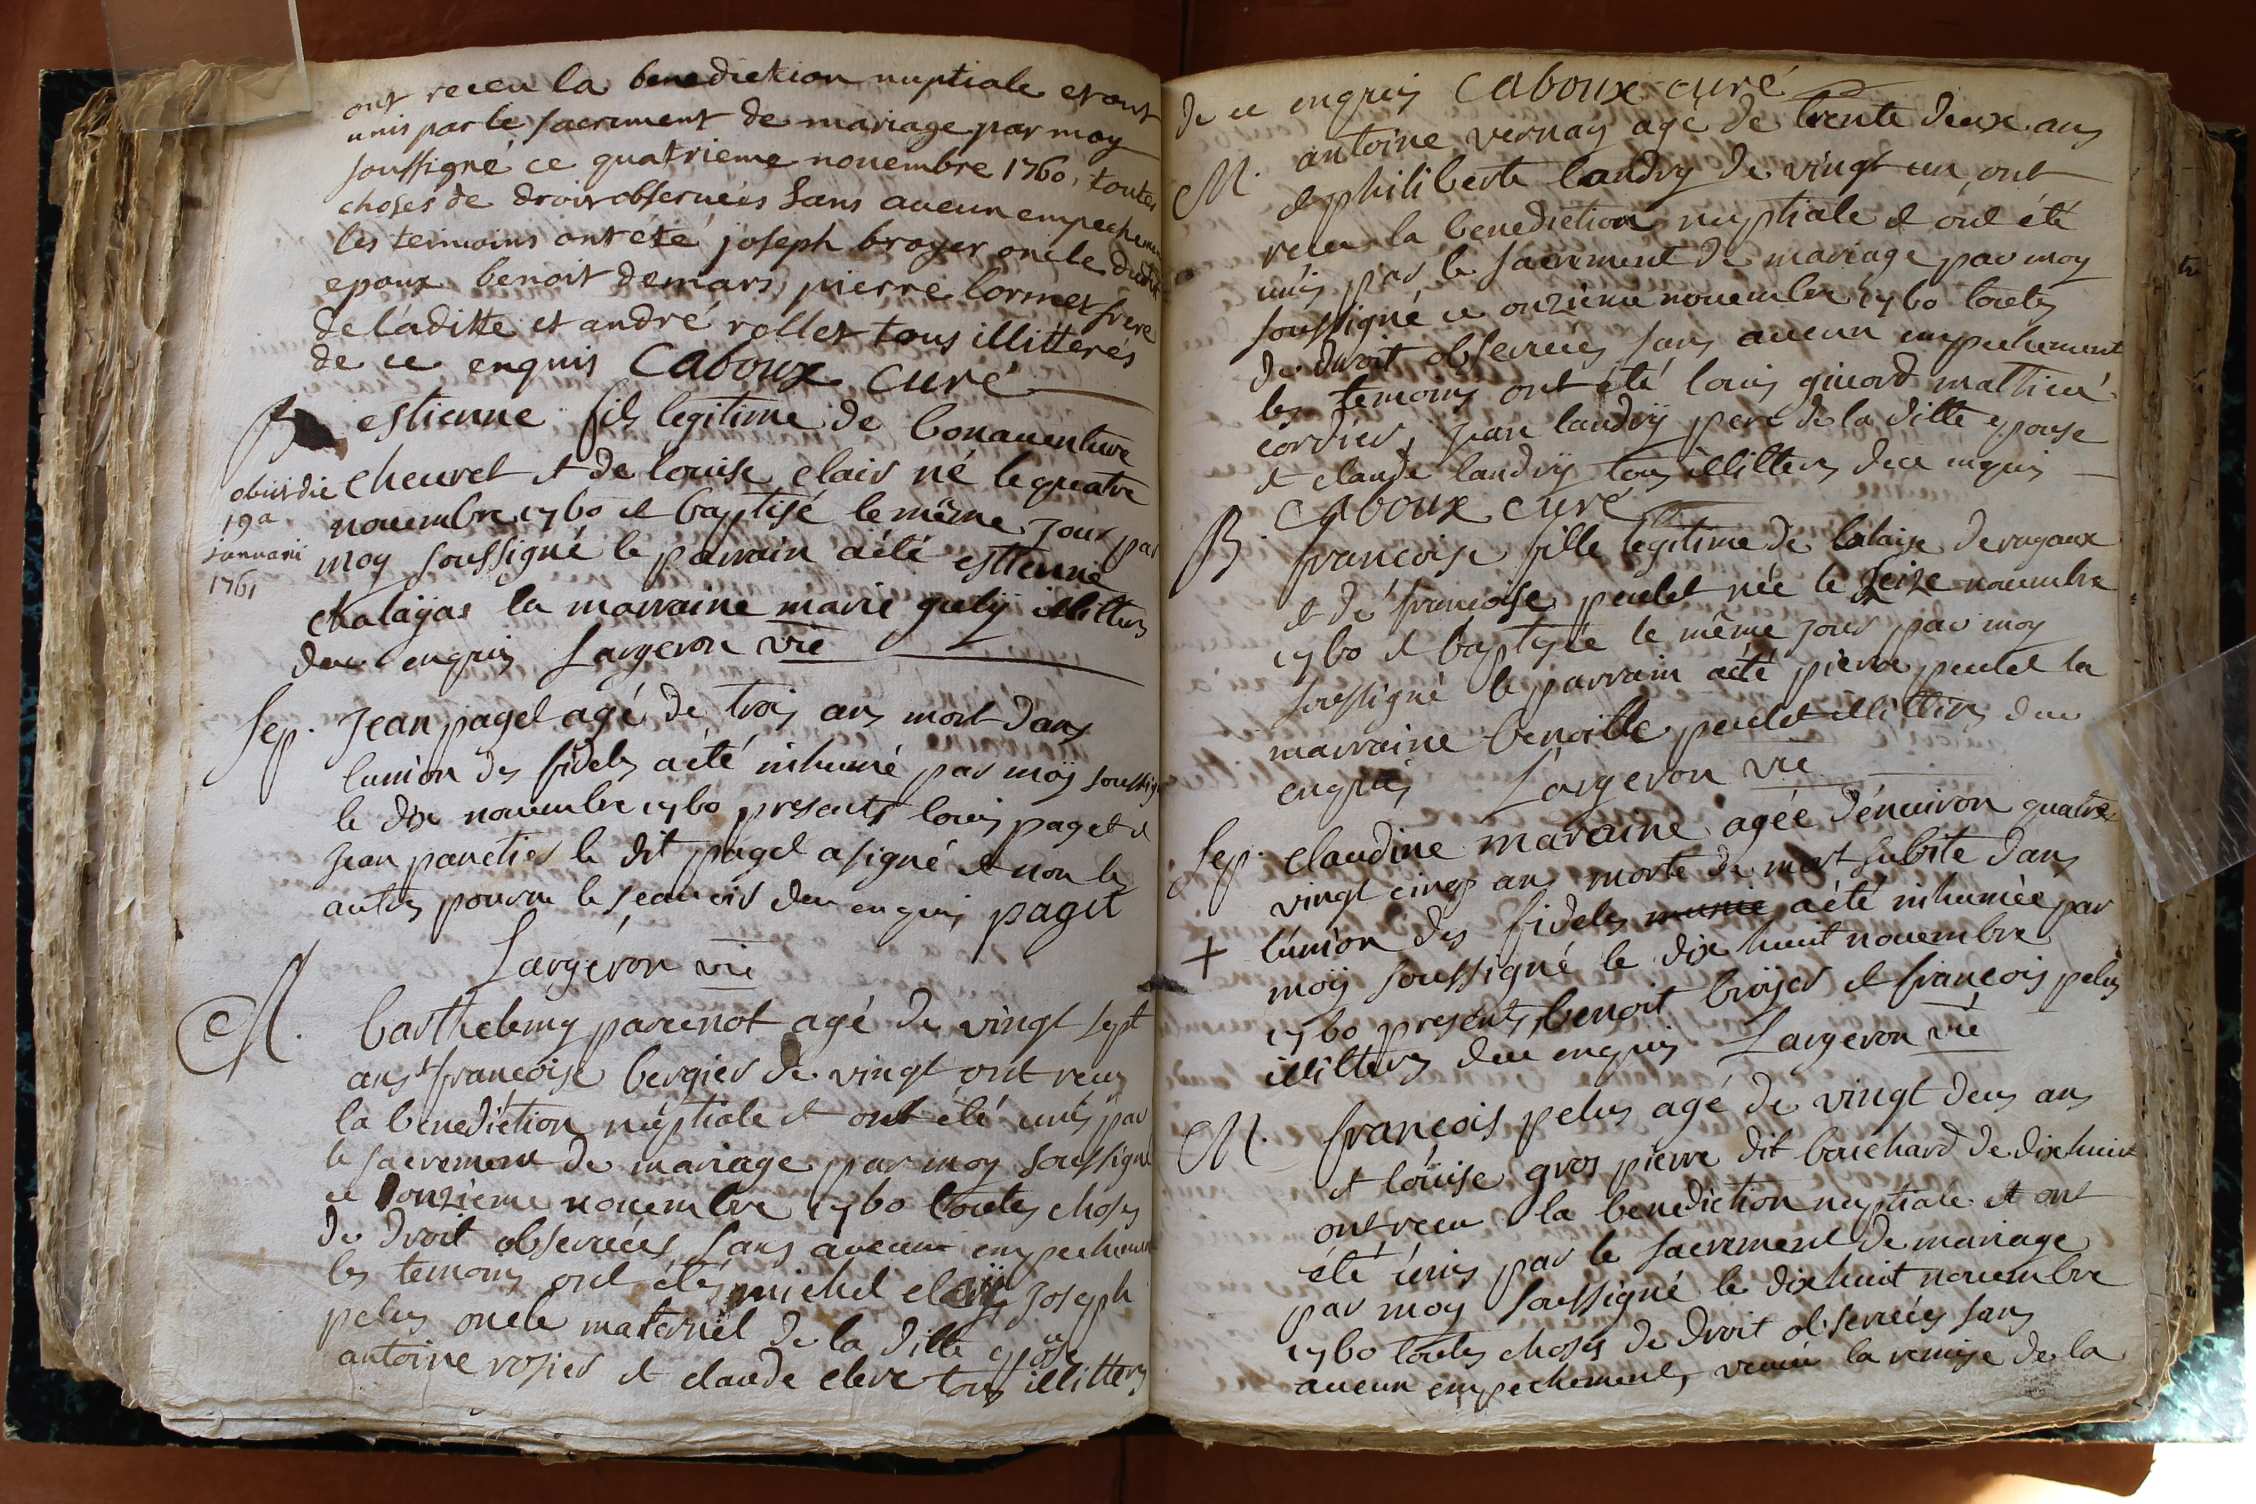 ont receu la benediction nuptiale et ont
unis par le sacrement de mariage par moy
soussigné ce quatrieme novembre 1760, toutes
choses de droit observées sans aucun empechement
les temoins ont été joseph broyer oncle dudit
epoux benoit demars, pierre lormet frere
de laditte et andré rollet tous illitterés
de ce enquis Caboux curé
B estienne fils legitime de bonaventure
chevret et de louise clair né le quatre
novembre 1760 et baptisé le même jour par
moy soussigné le parrain a été estienne
chalayas la marraine marie guely illitters
de ce enquis Largeron vic
obiit die
19a
januarii
1761
Sep. Jean paget agé de trois ans mort dans
lunion des fideles a été inhumé par moÿ soussig
le dix novembre 1760 presents louis paget et
jean panetier le dit paget a signé et non les
autres pour ne le scavoir de ce enquis paget
Largeron vic
M. barthelemy parenot agé de vingt sept
ans et françoise bergier de vingt ont receu
la benediction nuptiale et ont été unis par
le sacrement de mariage par moy soussigné
ce onzieme novembre 1760 toutes choses
de droit observées sans aucun empechement
les temoins ont étés michel joseph
pelus oncle maternel de la ditte epouse
antoine rosier et claude clere tous illitters
de ce enquis Caboux curé
M. antoine vernay agé de trente deux ans
et philiberte landry de vingt un, ont
receu la benediction nuptiale et ont été
unis par le sacrement de mariage par moy
soussigné ce onzieme novembre 1760 toutes
de droit observées sans aucun empechement
les temoins ont été louis givord mathieu
cordier, jean landrÿ pere de la ditte epouse
et claude landrÿ tous illitters de ce enquis
Caboux curé
B. francoise fille legitime de blaise
et de françoise peulet née le seize novembre
1760 et baptisée le même jour par moy
soussigné le parrain a été pierre peulet la
marraine benoitte peulet illitters de ce
enquis Largeron vic
Sep. claudine maraine agée d'environ quatre
vingt cinq ans morte de mort subite dans
+ l'union des fideles munie a été inhumée par
moÿ soussigné le dix huit novembre
1760 presents, benoit broÿer et françois pelus
illitters de ce enquis Largeron vic
M. françois pelus agé de vingt deux ans
et loüise gros pierre dit bouchard de dixhuit
ont receu la benediction nuptiale et ont
été unis par le sacrement de mariage
par moy soussigné le dixhuit novembre
1760 toutes choses de droit observées sans
aucun empechement, veuë la remise de la